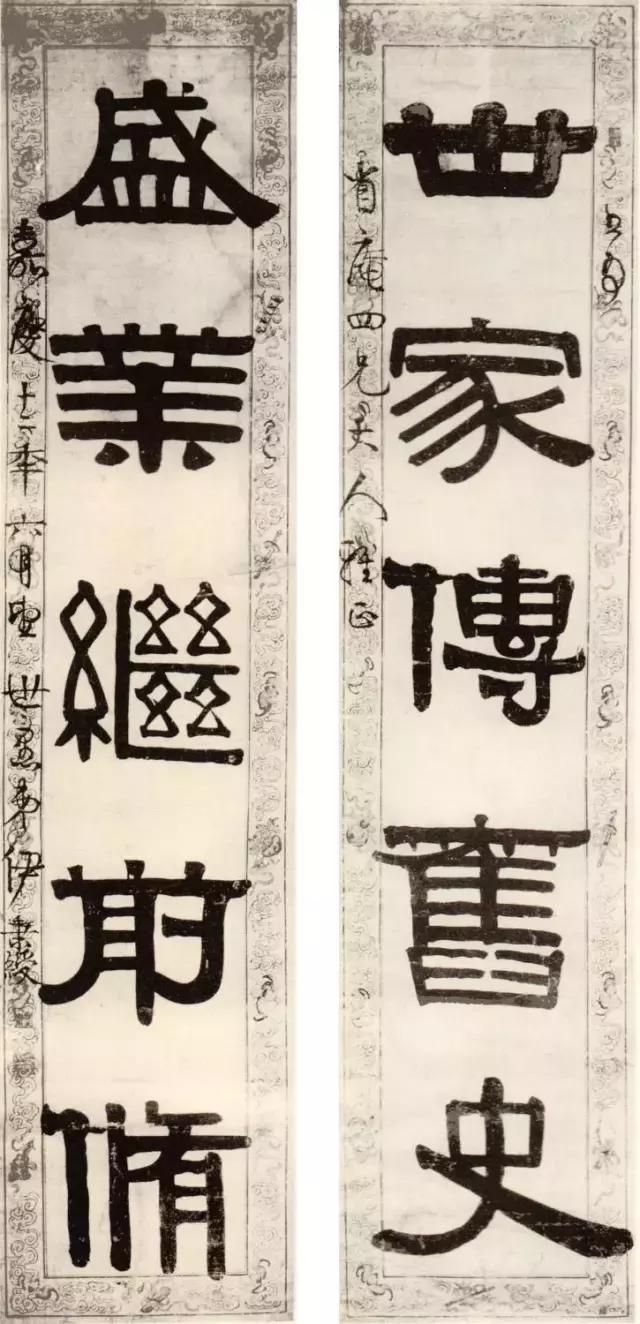 世家傳舊史
省庵四兄大人雅正
盛業繼前脩
嘉慶十一年六月望 世愚弟伊秉綬